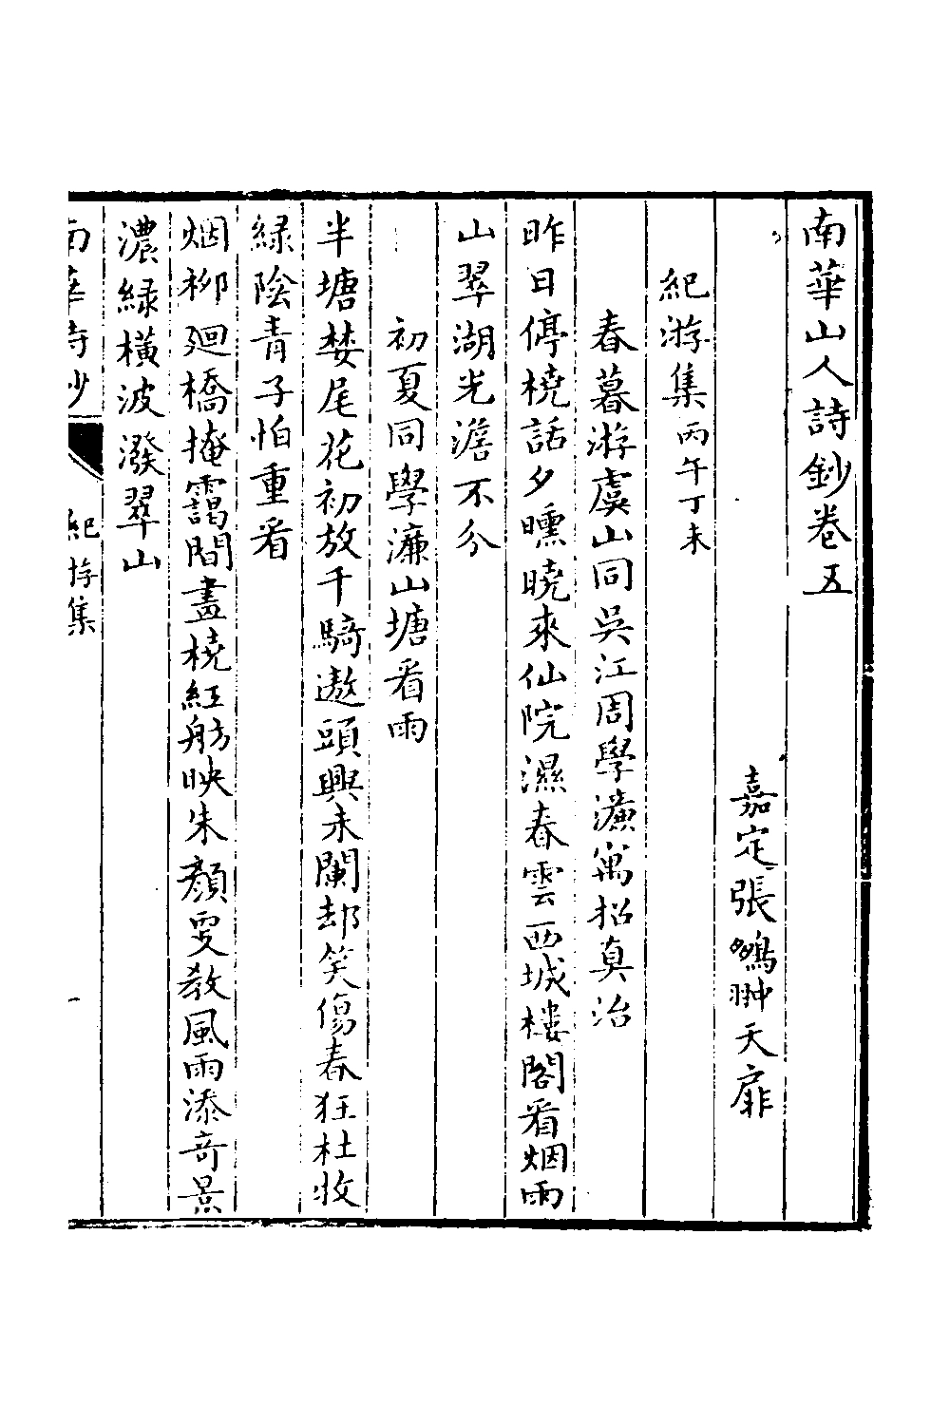 南華山人詩鈔卷五
嘉定張鵬翀天扉
紀游集丙午丁未
春暮游虞山同吳江周學濂寓招真治
昨日停橈話夕曛曉來仙院濕春雲西城樓閣看烟雨
山翠湖光澹不分
初夏同學濂山塘看雨
半塘婪尾花初放千騎遨頭興未闌却笑傷春狂杜牧
綠陰青子怕重看
烟柳廻橋掩靄間畫橈紅舫映朱顏更教風雨添奇景
濃綠橫波潑翠山
南華詩鈔
紀游集
一